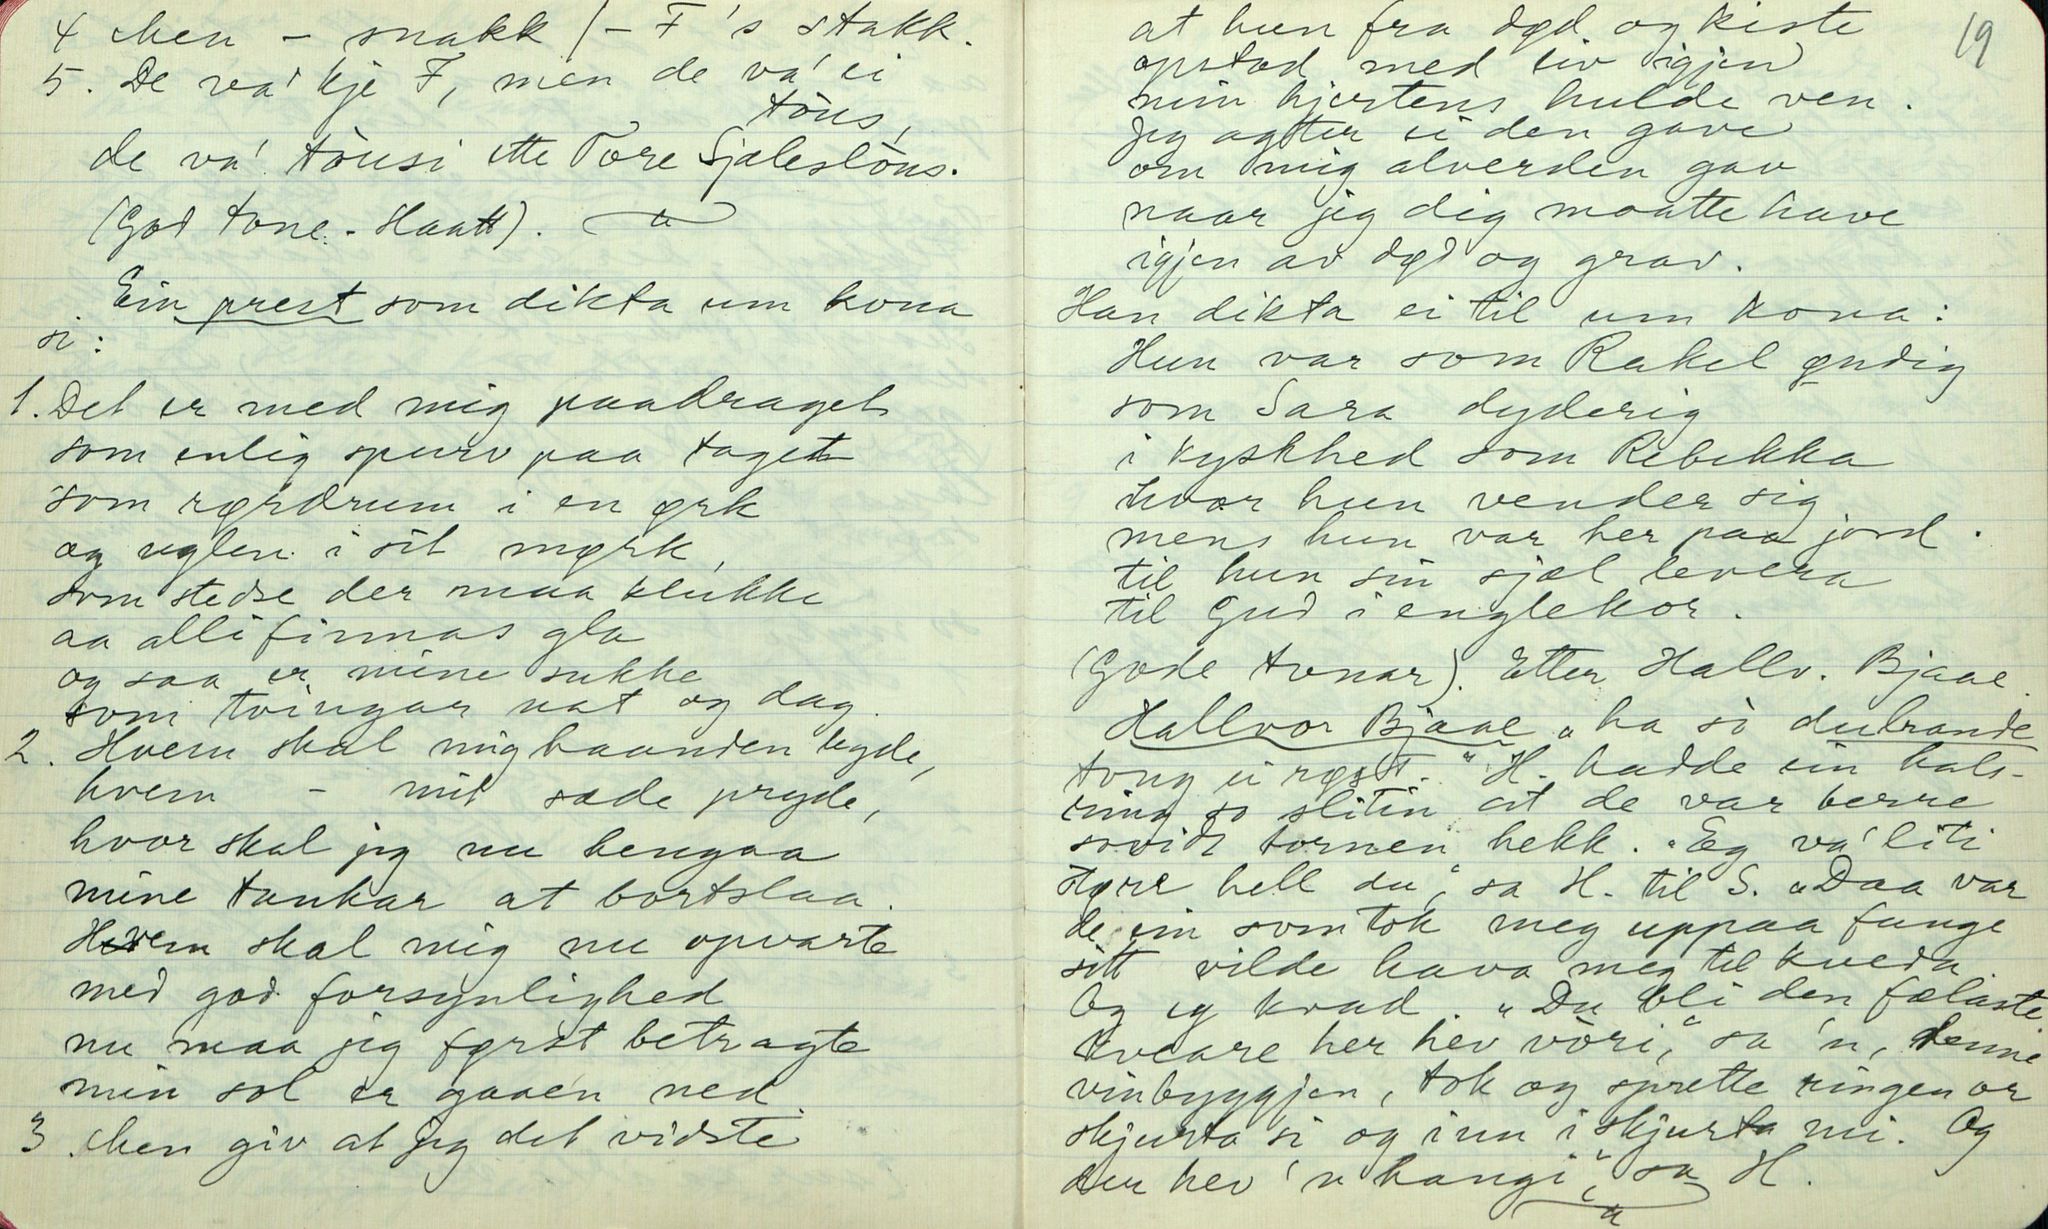 4 Men – snakk /– F's stakk.
5. De va' kje F, men de va' ei
tòus,
de va' tòusi ette Tore Sjøleslòus.
(God tone. Haatt).
Ein prest som dikta um kona
si:
1. Det er med mig paadraget
som enlig spurv paa taget
som rørdrum i en ørk
og uglen i sit mørk,
som stedse der maa klukke
aa alli finnas gla
og saa er mine sukke
som tvingar nat og dag.
2. Hvem skal mig haanden byde,
hvem – mit sæde pryde,
hvor skal jeg nu hengaa
mine tankar at bortslaa.
Hvem skal mig nu opvarte
med god forsynlighed
nu maa jeg først betragte
min sol er gaaen ned.
3. Men giv at jeg det vidste
19
at hun fra død og kiste
opstod med liv igjen
min hjertens hulde ven.
Jeg agter ei den gave
om mig alverden gav
naar jeg dig maatte have
igjen av død og grav.
Han dikta ei til um kona:
Hun var som Rakel yndig
som Sara dyderig
i kyskhed som Rebekka
hvor hun vender sig
mens hun var her paa jord.
til hun sin sjæl levera
til Gud i englekor.
(Gode tonar). Etter Hallv. Bjaae.
Hallvor Bjaae "ha so dubrande
tong ei røst." H. hadde ein hals-
ring so slitin at de var berre
sovidt tornen hekk. "Eg va' liti
større hell du", sa H. til S. "Daa var
de ein som tok meg uppaa fange
sitt vilde hava meg til kveda.
Og eg kvad. "Du bli den fælaste
kveare her hev vòri", sa 'n, denne
vinbyggjen, tok og sprette ringen or
skjurta si og inn i skjurta mi. Og
der hev 'n hangi", sa H.